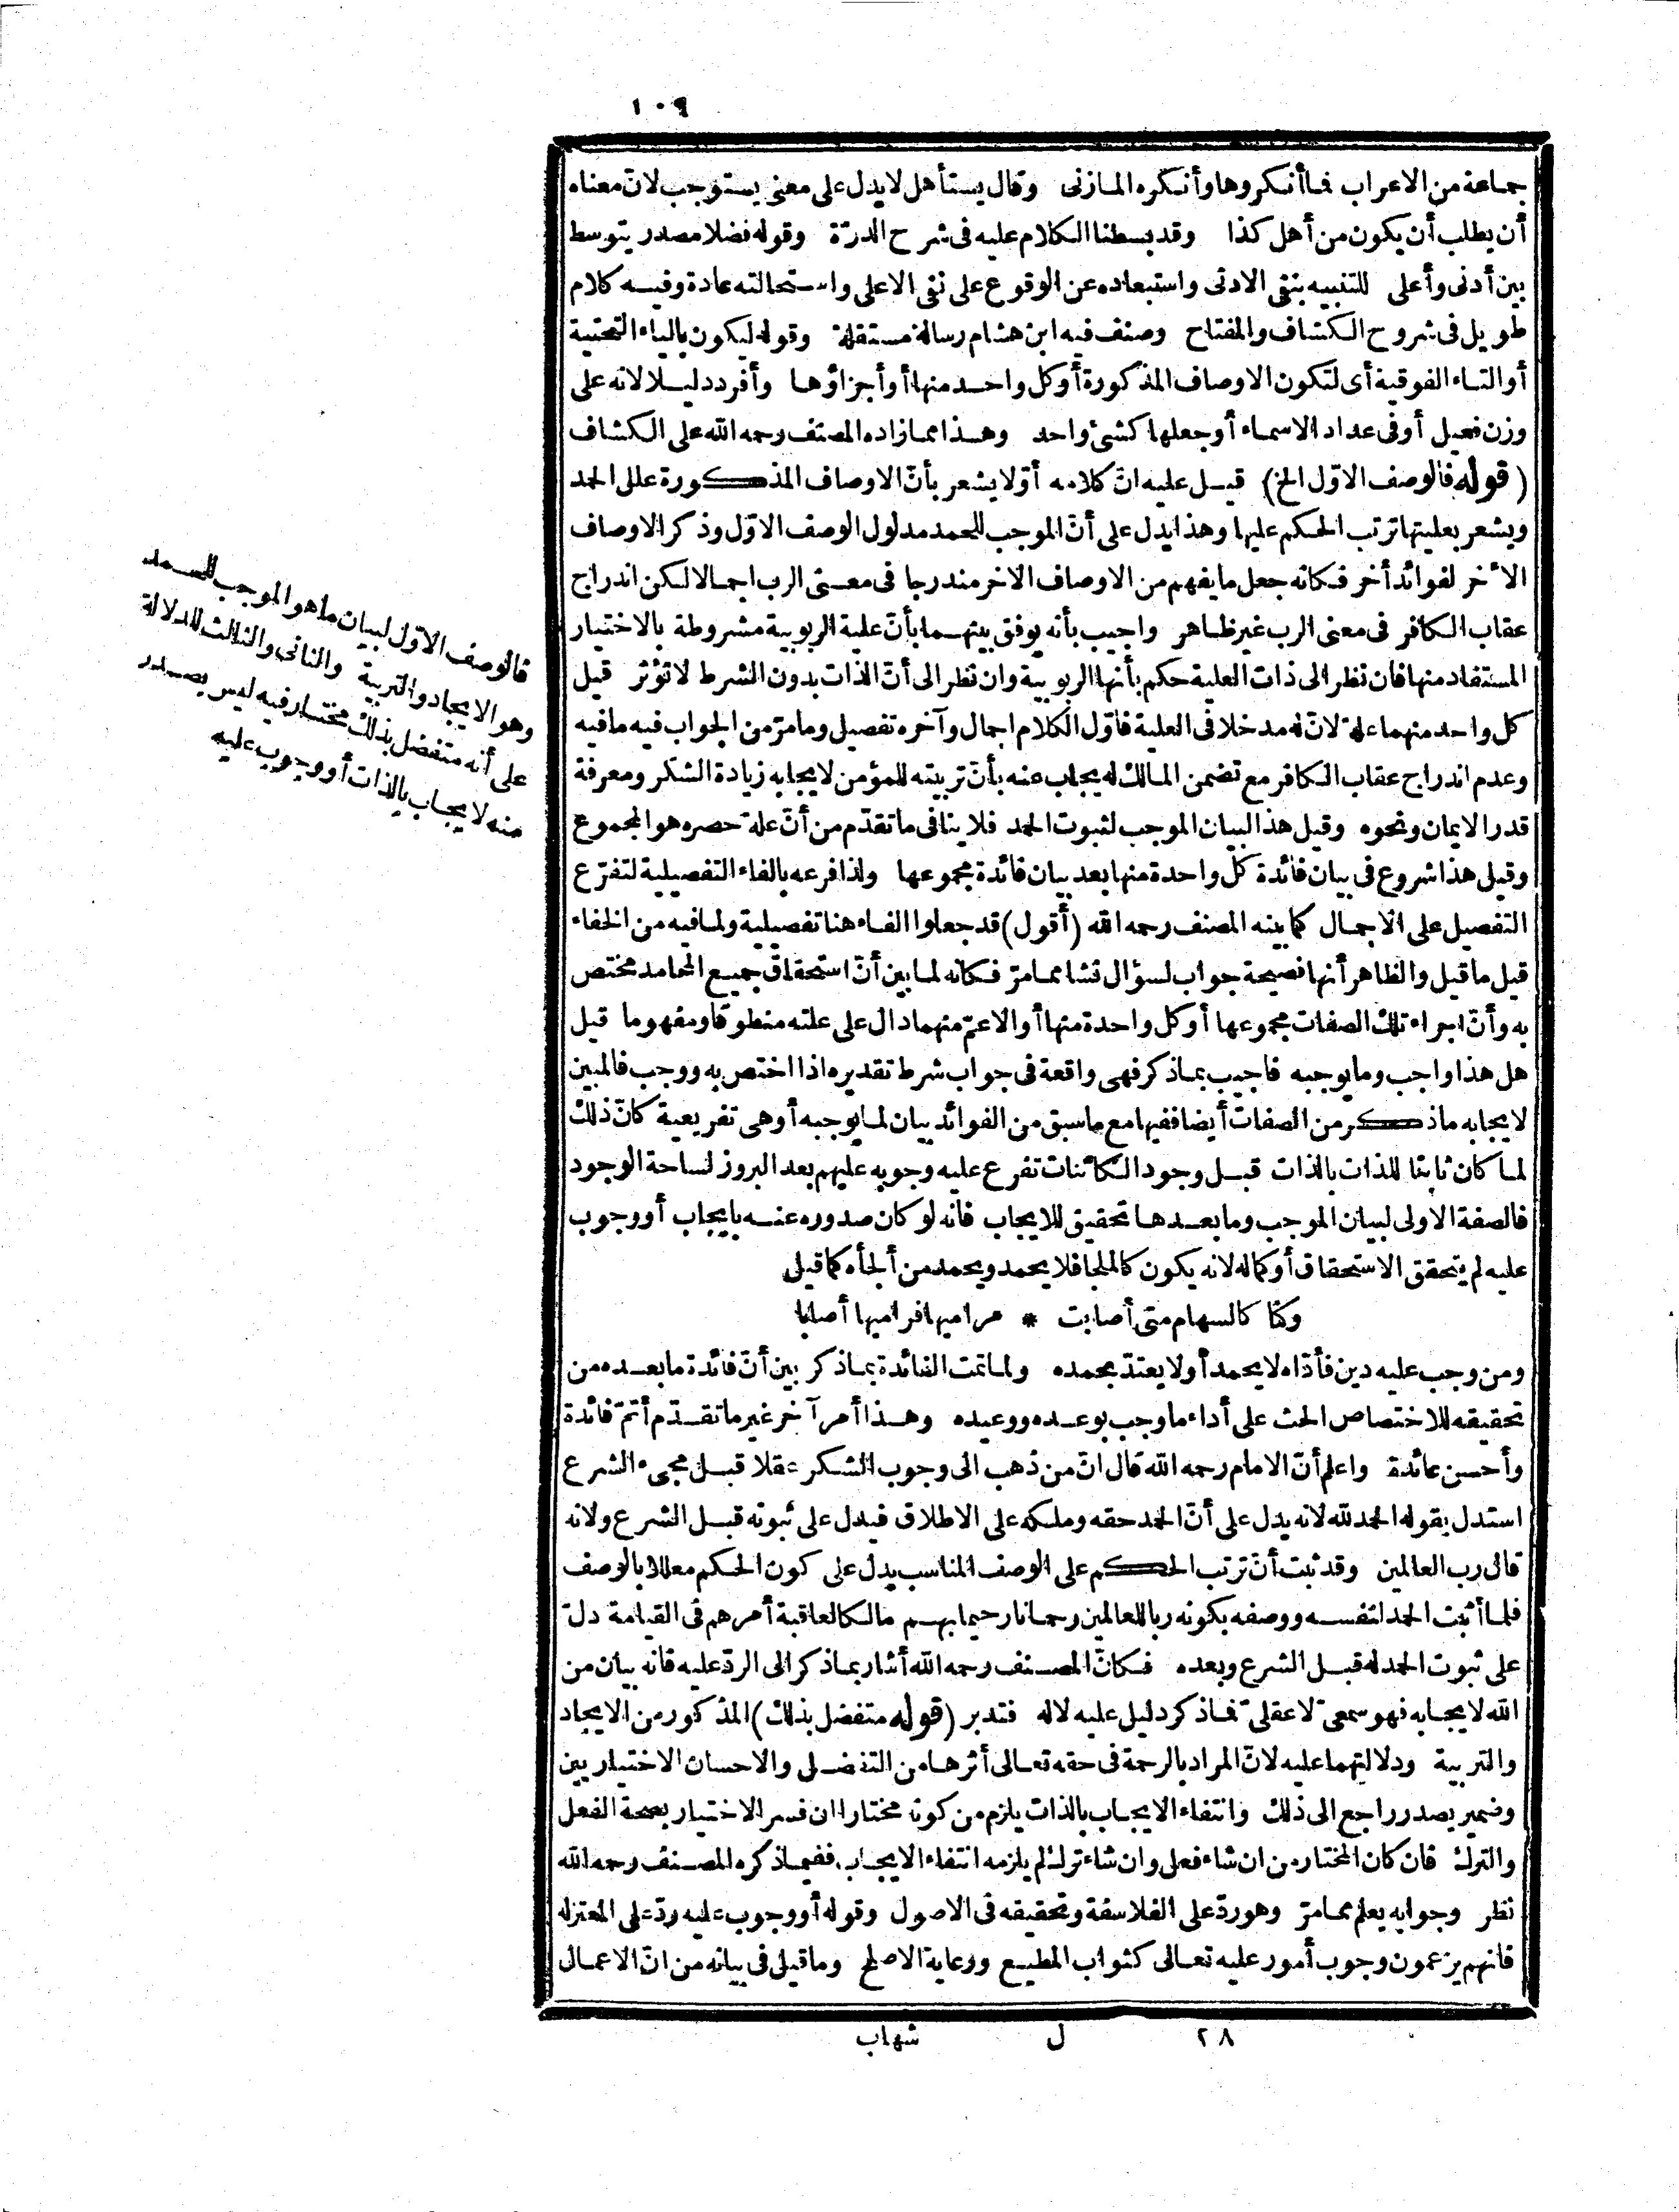 ١٠٩
جماعة من الاعراب فما أنكروها وأنكره المازنى وقال يستأهل لا يدل على معنى يستوجب لانّ معناه
أن يطلب أن يكون من أهل كذا وقد بسطنا الكلام عليه فى شرح الدرّة وقوله فضلا مصدر يتوسط
بين أدنى وأعلى للتنبيه بنفى الادنى واستبعاده عن الوقوع على نفى الاعلى واستحالته عادة وفيه كلام
طويل فى شروح الكشاف والمفتاح وصنف فيه ابن هشام رسالة مستقلة وقوله ليكون بالياء التحتية
أو التاء الفوقية أى لتكون الاوصاف المذكورة أو كل واحد منها أو أجزاؤها وأفرد دليلا لانه على
وزن فعيل أو فى عداد الاسماء أو جعلها كشئ واحد وهذا مما زاده المصنف رحمه الله على الكشاف
(قوله فالوصف الاوّل الخ) قيل عليه انّ كلامه أوّلا يشعر بأنّ الاوصاف المذكورة علل الحمد
ويشعر بعليتها ترتب الحكم عليها وهذا يدل على أنّ الموجب للحمد مدلول الوصف الاوّل وذكر الاوصاف
الأخر لفوائد أخر فكانه جعل ما يفهم من الاوصاف الاخر مندرجا فى معنى الرب اجمالا لكن اندراج
عقاب الكافر فى معنى الرب غير ظاهر واجيب بأنه يوفق بينهما بأنّ علية الربوبية مشروطة بالاختيار
المستفاد منها فان نظر الى ذات العلية حكم بأنها الربوبية وان نظر الى أنّ الذات بدون الشرط لا تؤثر قيل
كل واحد منهما علة لانّ له مدخلا فى العلية فأوّل الكلام اجمال وآخره تفصيل وما مرّ من الجواب فيه ما فيه
وعدم اندراج عقاب الكافر مع تضمن المالك له يجاب عنه بأنّ تربيته للمؤمن لايجابه زيادة الشكر ومعرفة
قدر الايمان ونحوه وقيل هذا البيان الموجب لثبوت الحمد فلا ينافى ما تقدّم من أنّ علة حصره هو المجموع
وقيل هذا شروع فى بيان فائدة كل واحدة منها بعد بيان فائدة مجموعها ولذا فرعه بالفاء التفصيلية لتفرّع
التفصيل على الاجمال كما بينه المصنف رحمه الله (أقول) قد جعلوا الفاء هنا تفصيلية ولما فيه من الخفاء
قيل ما قيل والظاهر أنها فصيحة جواب لسؤال نشا مما مرّ فكانه لما بين أنّ استحقاق جميع المحامد مختص
به وأنّ اجراء تلك الصفات مجموعها أو كل واحدة منها أو الاعمّ منهما دال على علته منطوقا ومفهوما قيل
هل هذا واجب وما يوجبه فاجيب بما ذكر فهى واقعة فى جواب شرط تقديره اذا اختص به ووجب فالمبين
لايجابه ما ذكر من الصفات أيضا ففيها مع ما سبق من الفوائد بيان لما يوجبه أو هى تفريعية كانّ ذلك
لما كان ثابتا للذات بالذات قبل وجود الكائنات تفرع عليه وجوبه عليهم بعد البروز لساحة الوجود
فالصفة الاولى لبيان الموجب وما بعدها تحقيق للايجاب فانه لو كان صدوره عنه بايجاب أو وجوب
عليه لم يتحقق الاستحقاق أو كماله لانه يكون كالملجا فلا يحمد ويحمد من ألجأه كما قيل
وكنا كالسهام متى أصابت * مراميها فراميها أصابا
ومن وجب عليه دين فأدّاه لا يحمد أو لا يعتدّ بحمده ولما تمت الفائدة بما ذكر بين أنّ فائدة ما بعده من
تحقيقه للاختصاص الحث على أداء ما وجب بوعده ووعيده وهذا أمر آخر غير ما تقدّم أتمّ فائدة
وأحسن عائدة واعلم أنّ الامام رحمه الله قال انّ من ذهب الى وجوب الشكر عقلا قبل مجىء الشرع
استدل بقوله الحمد لله لانه يدل على أنّ الحمد حقه وملكه على الاطلاق فيدل على ثبوته قبل الشرع ولانه
قال رب العالمين وقد ثبت أنّ ترتب الحكم على الوصف المناسب يدل على كون الحكم معللا بالوصف
فلما أثبت الحمد لنفسه ووصفه بكونه ربا للعالمين رحمانا رحيما بهم مالكا لعاقبة أمرهم فى القيامة دلّ
على ثبوت الحمد له قبل الشرع وبعده فكانّ المصنف رحمه الله أشار بما ذكر الى الردّ عليه فانه بيان من
الله لايجابه فهو سمعىّ لا عقلىّ فما ذكر دليل عليه لا له فتدبر (قوله متفضل بذلك) المذكور من الايجاد
والتربية ودلالتهما عليه لانّ المراد بالرحمة فى حقه تعالى أثرها من التفضل والاحسان الاختياريين
وضمير يصدر راجع الى ذلك وانتفاء الايجاب بالذات يلزم من كونه مختارا ان فسر الاختيار بصحة الفعل
والترك فان كان المختار من ان شاء فعل وان شاء ترك لم يلزمه انتفاء الايجاب ففيما ذكره المصنف رحمه الله
نظر وجوابه يعلم مما مرّ وهو ردّ على الفلاسفة وتحقيقه فى الاصول وقوله أو وجوب عليه ردّ على المعتزلة
فانهم يزعمون وجوب أمور عليه تعالى كثواب المطيع ورعاية الاصلح وما قيل فى بيانه من انّ الاعمال
فالوصف الاوّل لبيان ما هو الموجب للحمد
وهو الايجاد والتربية والثانى والثالث للدلالة
على أنه متفضل بذلك مختار فيه ليس يصدر
منه لايجاب بالذات أو وجوب عليه
٢٨ ل شهاب